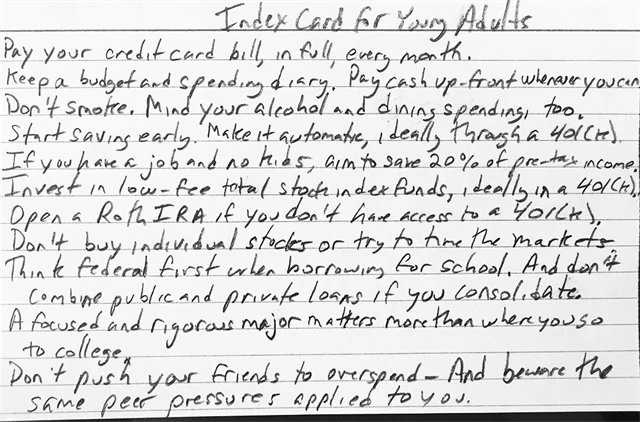 Index Card for Young Adults
Pay your credit card bill, in full, every month.
Keep a budget and spending diary. Pay cash up-front whenever you can
Don't smoke. Mind your alcohol and dining spending, too.
Start saving early. Make it automatic, ideally through a 401(k).
If you have a job and no kids, aim to save 20% of pre-tax income.
Invest in low-fee total stock index funds, ideally in a 401(k).
Open a Roth IRA if you don't have access to a 401(k).
Don't buy individual stocks or try to time the markets.
Think federal first when borrowing for school. And don't
combine public and private loans if you consolidate.
A focused and rigorous major matters more than where you go
to college.
Don't push your friends to overspend - And beware the
same peer pressures applied to you.